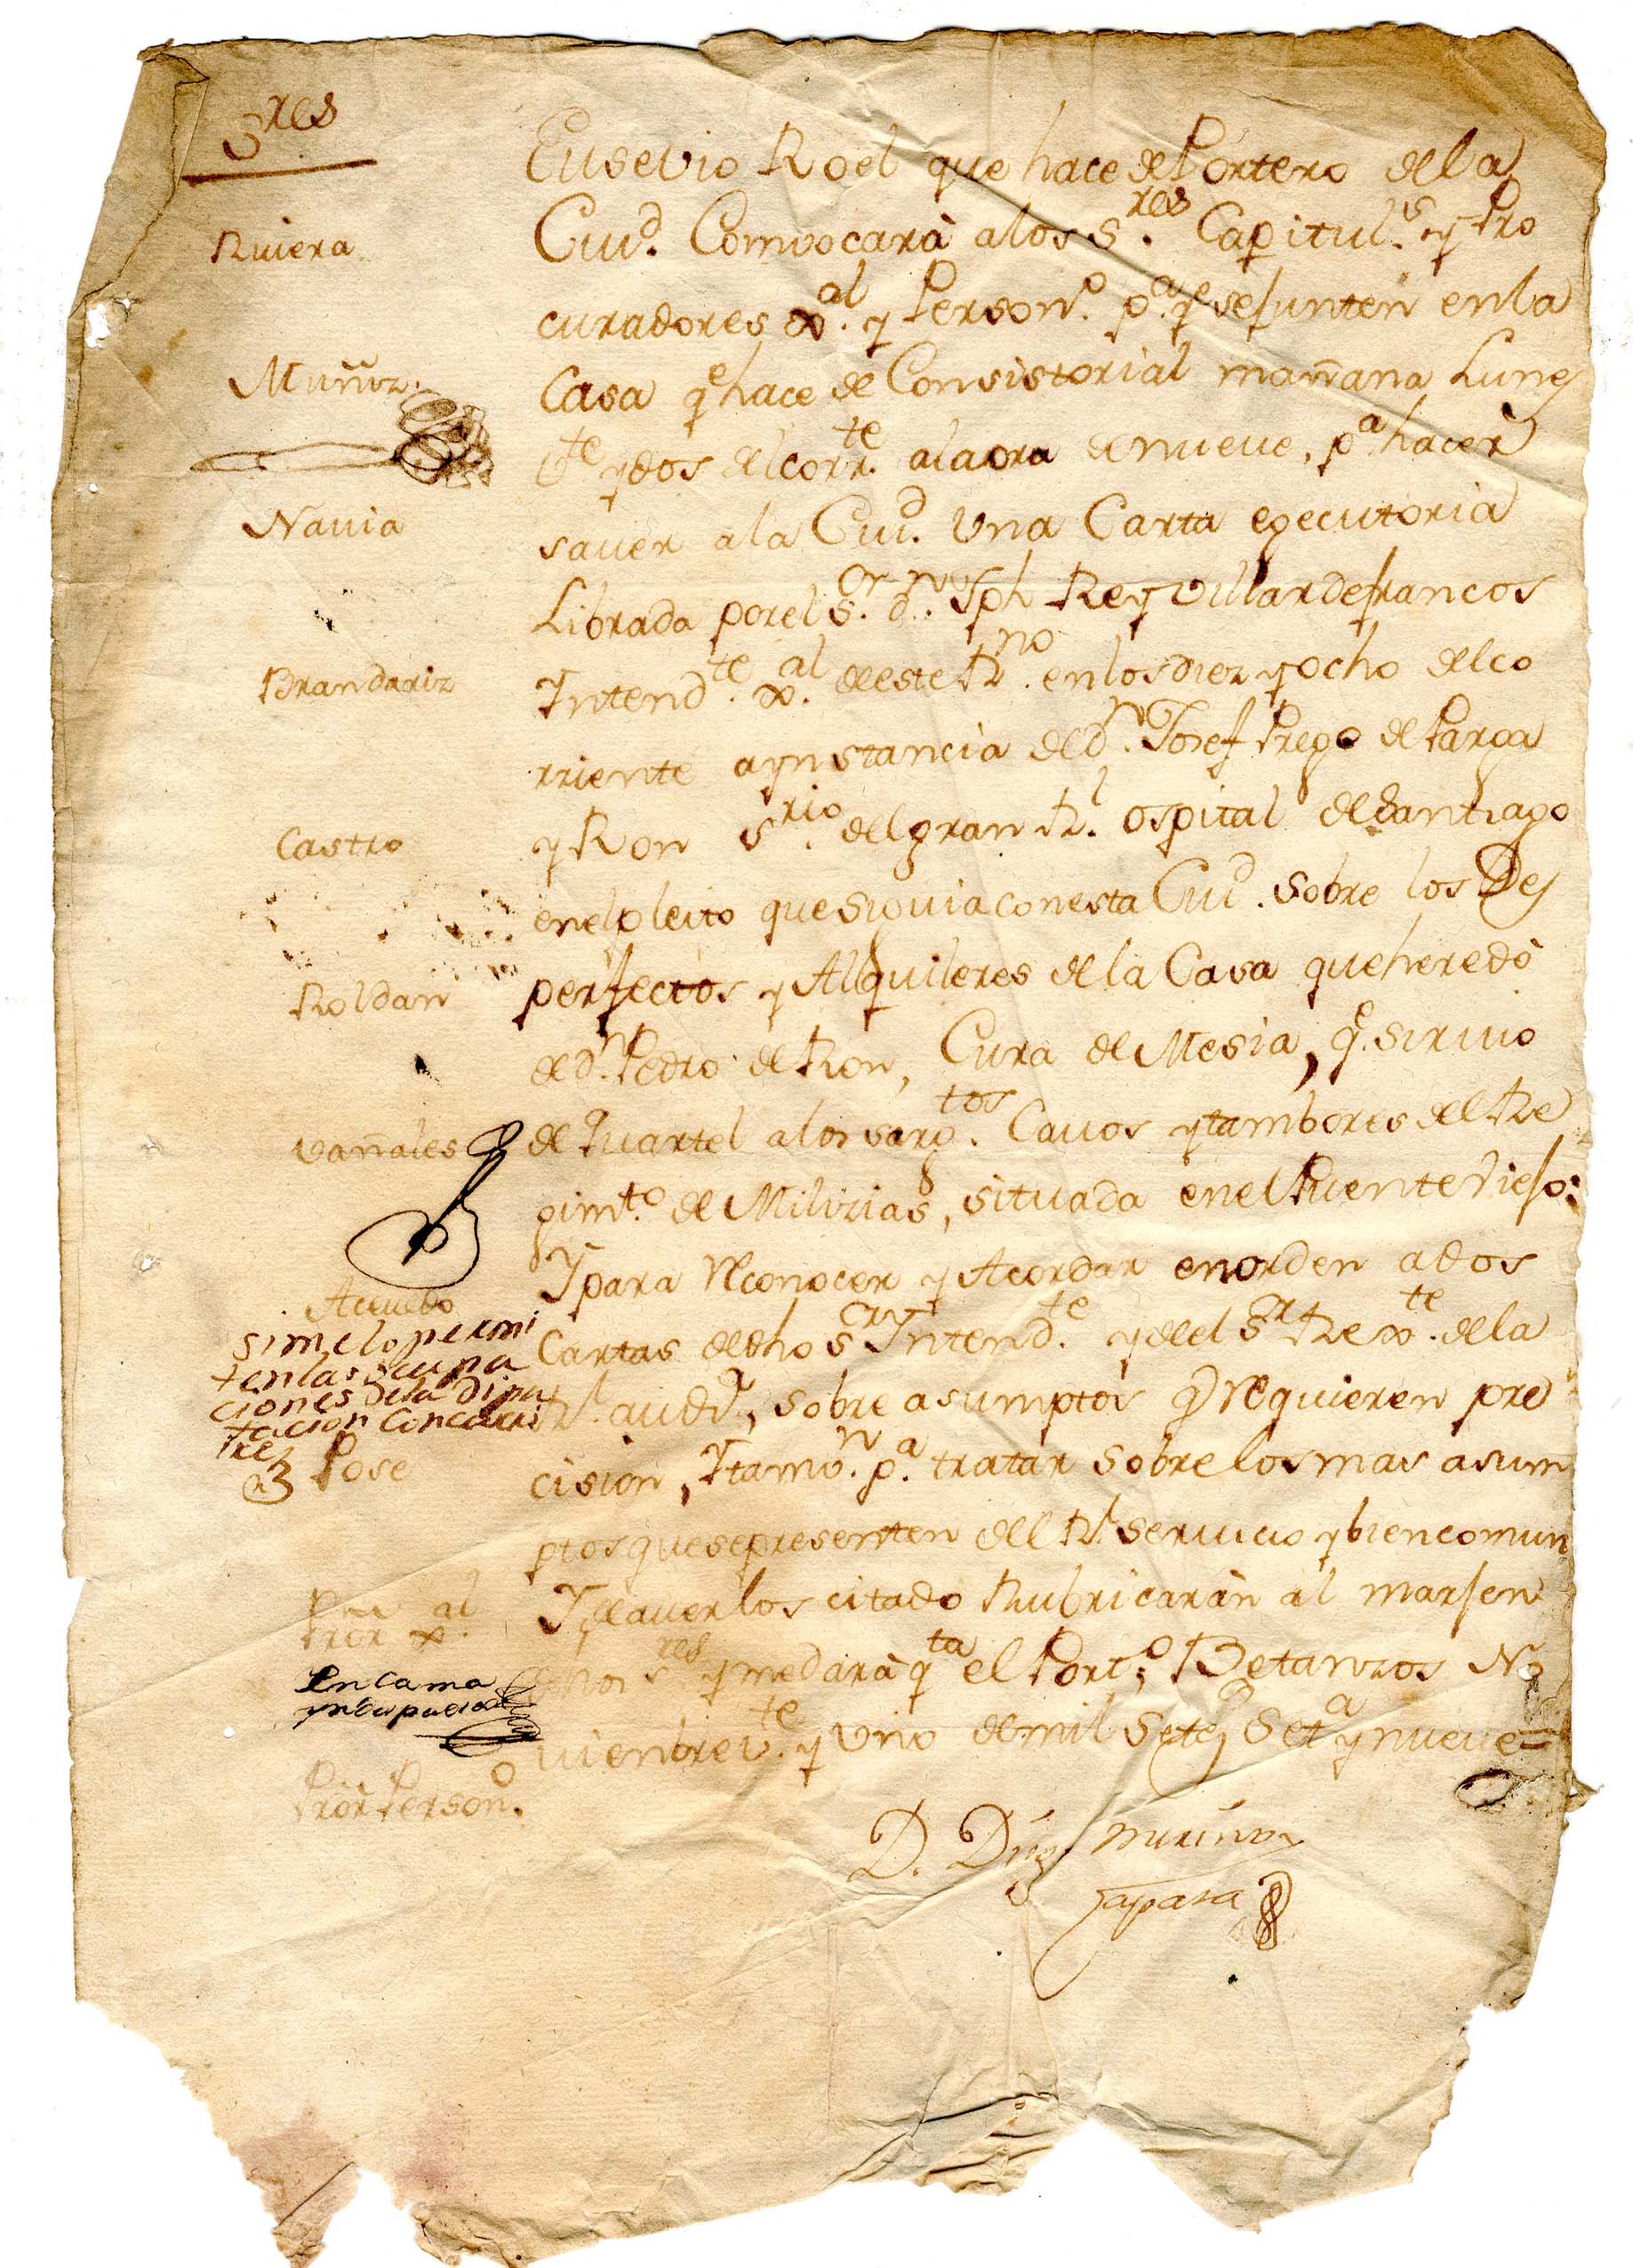 Sres
Riviera
Muñoz
Navia
Brandariz
Castro
Roldan
Vañales
Acevedo
si me lo permi
ten las ocupa
ciones de la Dipu
tacion Concurri
re
Pose
Pror Gral
en cama
Pror Person.o
Eusevio Roel que hace de Portero de la
Ciud. Comvocarà a los Sres Capituls. y Pro
curadores Gral. y Person.o p.a q.e se junten en la
Casa q.e hace de Consistorial mañana Lunes
vte y dos del corrte. a la ora de nueve, p.a hacer
saver a la Ciud. Una Carta egecutoria
Librada por el Sor. dn. Jph Rey Villardefrancos
Intendte. Gral. de este Rno. en los diez y ocho del co
rriente a ynstancia de dn. Josef Prego de Parga
y Ron Srio. del gran Rl. ospital de Santiago
en el pleito que siguia con esta Ciud. sobre los Des
perfectos y Alquileres de la Casa que heredò
de dn. Pedro de Ron, Cura de Mesia, q.e sirvio
de Quartel a los sargtos. Cavos y tambores del Re
gimto. de Milizias, situada en el Puente Viejo:
Y para Reconocer y Acordar en orden a dos
Cartas de dho Sor Yntendte. y de el Sr Regte. de la
Rl. auda, sobre asumptos q Requieren pre
cision, Y tamvn. p.a tratar sobre los mas asum
ptos que se presenten del Rl. servicio y bien comun
Y de averlos citado Rubricaràn al marjen
dhos Sres y me darà qta el Port.o; Betanzos No
viembre vte. y Uno de mil Sets Seta y nueve=
D. Dieg Muñoz
Zapata